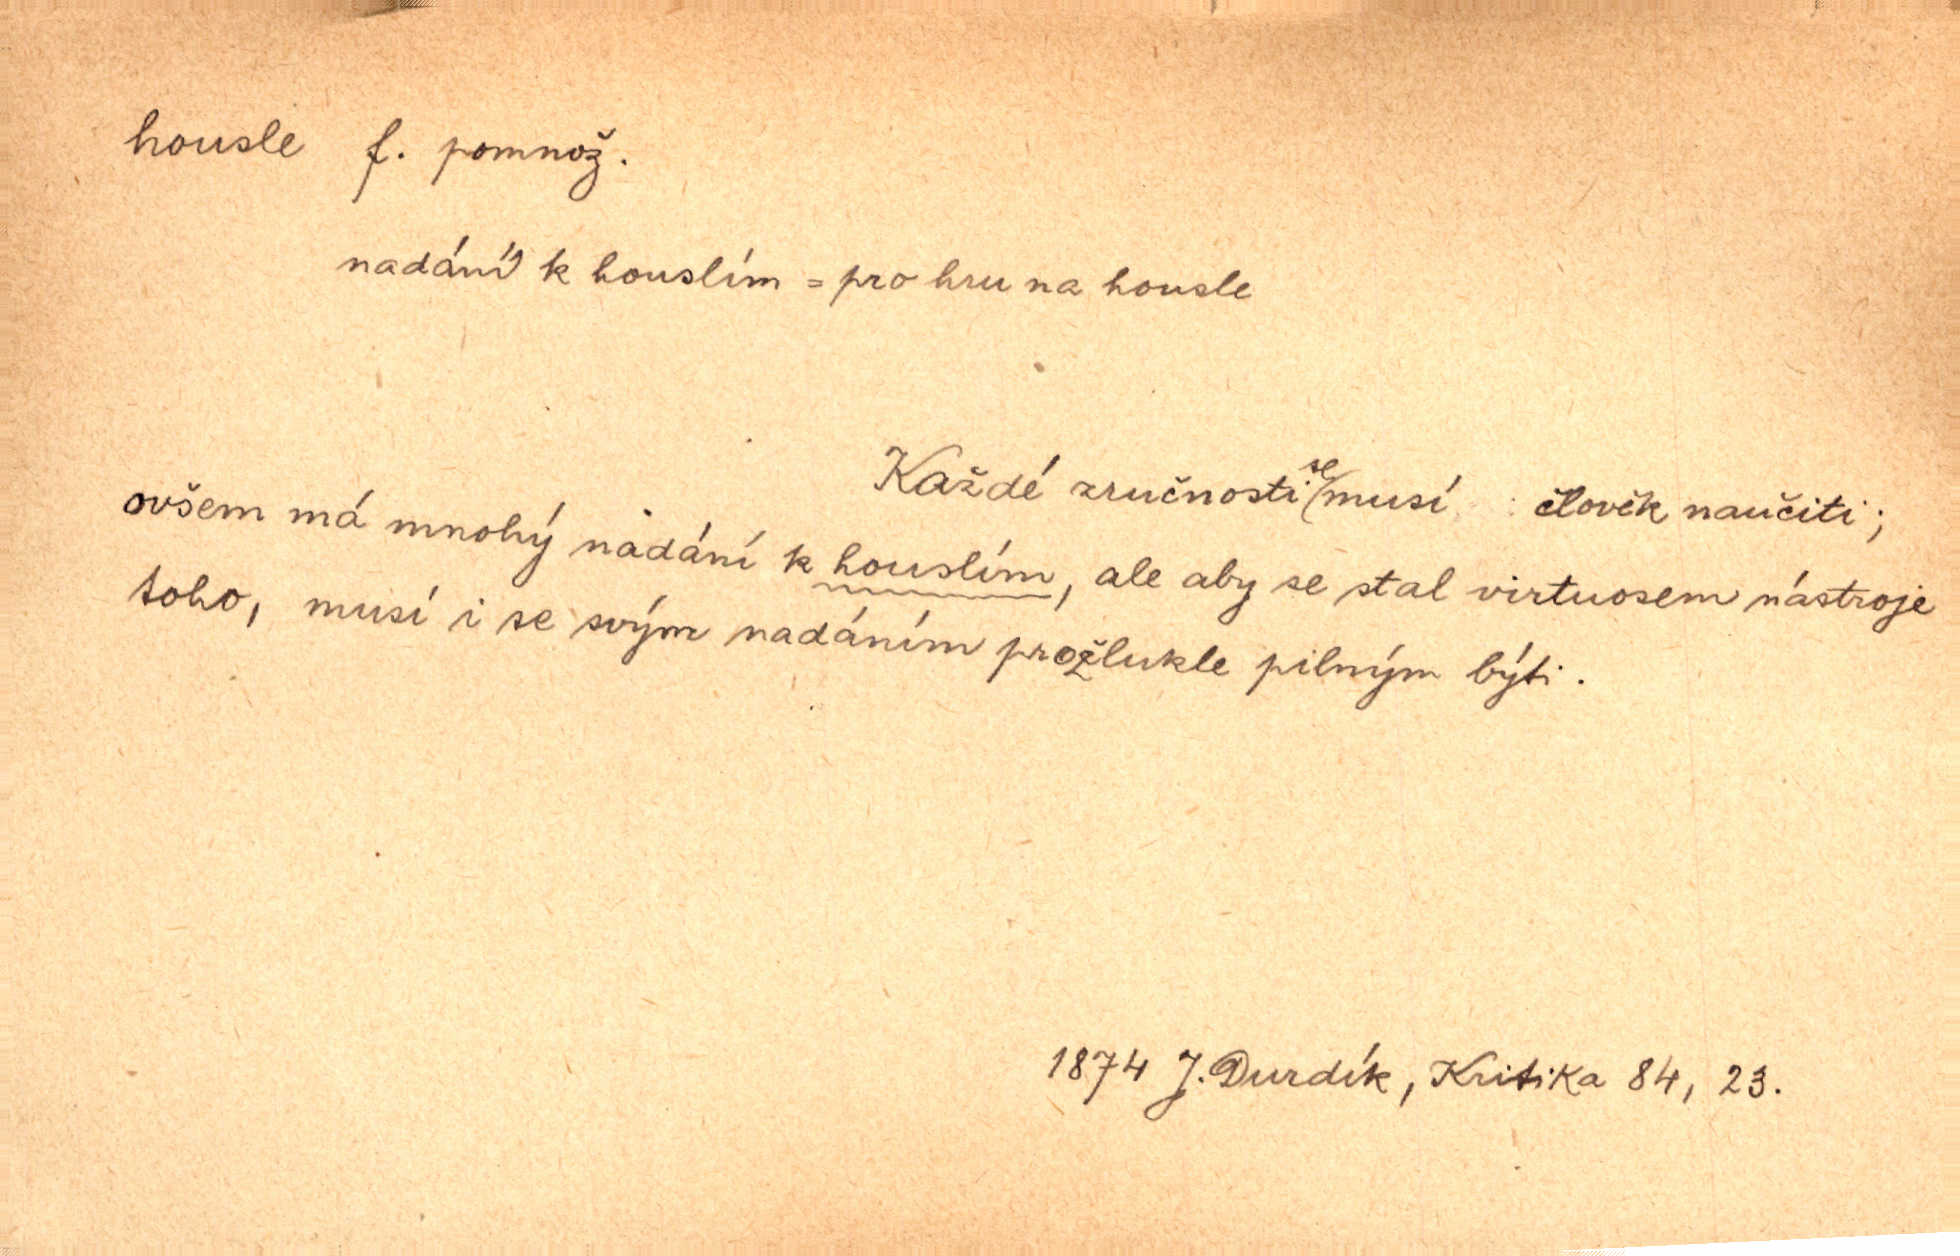 housle f. pomnož.
nadání k houslím = pro hru na housle
Každé zručnosti se musí člověk naučiti;
ovšem má mnohý nadání k houslím, ale aby se stal virtuosem nástroje
toho, musí i se svým nadáním prožlukle pilným býti.
1874 J. Durdík, Kritika 84, 23.